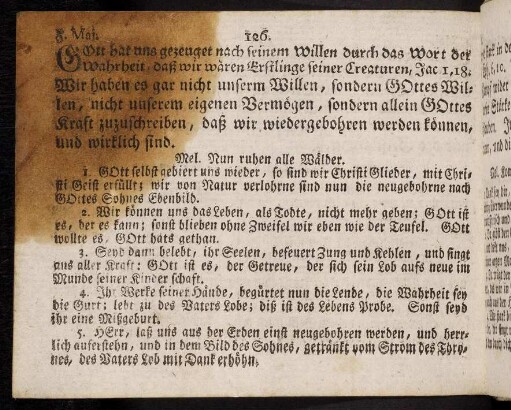 8. Maj. 126.
GOtt hat uns gezeuget nach seinem Willen durch das Wort der
Wahrheit, daß wir wären Erstlinge seiner Creaturen, Jac 1, 18.
Wir haben es gar nicht unserm Willen, sondern GOttes Wil-
len, nicht unserem eigenen Vermögen, sondern allein GOttes
Kraft zuzuschreiben, daß wir wiedergebohren werden können,
und wirklich sind.
Mel. Nun ruhen alle Wälder.
1. GOtt selbst gebiert uns wieder, so sind wir Christi Glieder, mit Chri-
sti Geist erfüllt; wir von Natur verlohrne sind nun die neugebohrne nach
GOttes Sohnes Ebenbild.
2. Wir können uns das Leben, als Todte, nicht mehr geben; GOtt ist
es, der es kann; sonst blieben ohne Zweifel wir eben wie der Teufel. GOtt
wollte es, GOtt hats gethan.
3. Seyd dann belebt, ihr Seelen, befeuert Zung und Kehlen, und singt
aus aller Kraft: GOtt ist es, der Getreue, der sich sein Lob aufs neue im
Munde seiner Kinder schaft.
4. Ihr Werke seiner Hände, begürtet nun die Lende, die Wahrheit sey
die Gurt; lebt zu des Vaters Lobe; diß ist des Lebens Probe. Sonst seyd
ihr eine Mißgeburt.
5. HErr, laß uns aus der Erden einst neugebohren werden, und herr-
lich auferstehn, und in dem Bild des Sohnes, getränkt vom Strom des Thro-
nes, des Vaters Lob mit Dank erhöhn.